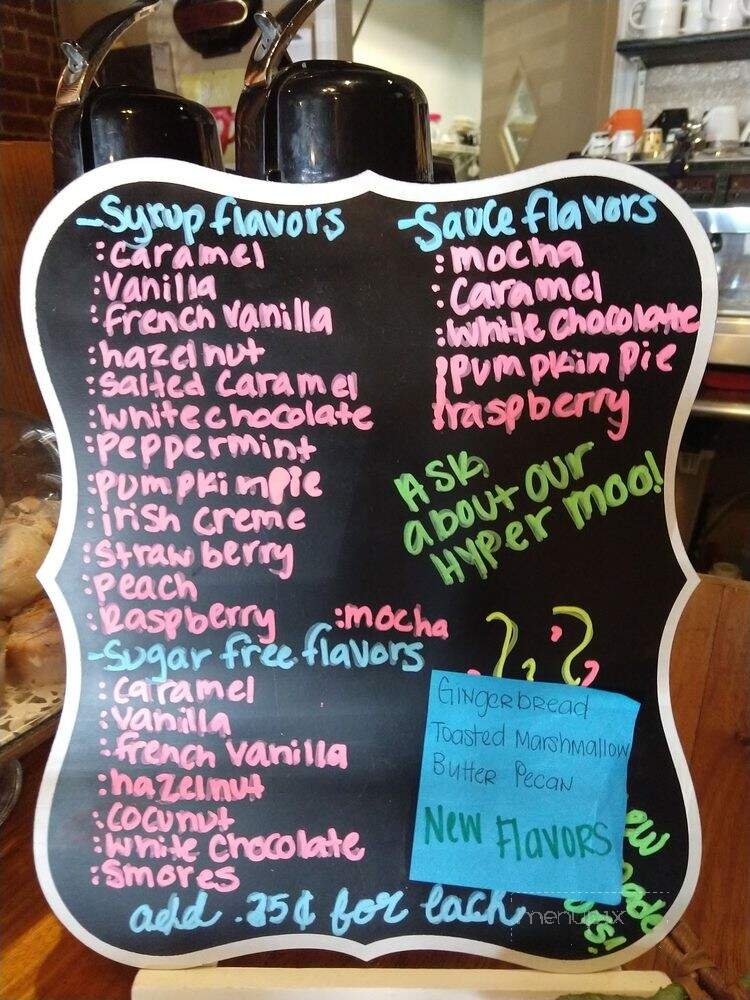 -Syrup flavors
:Caramel
:Vanilla
:french vanilla
:hazelnut
:Salted Caramel
:white chocolate
:Peppermint
:Pumpkin Pie
:irish creme
:Strawberry
:Peach
:Raspberry :mocha
-Sugar free flavors
:Caramel
:Vanilla
:french vanilla
:hazelnut
:Coconut
:White Chocolate
:Smores
add .25¢ for each
-Sauce flavors
:mocha
:Caramel
:White Chocolate
:Pumpkin Pie
:raspberry
Ask
about our
Hyper Moo!
Gingerbread
Toasted Marshmallow
Butter Pecan
New Flavors
menupix